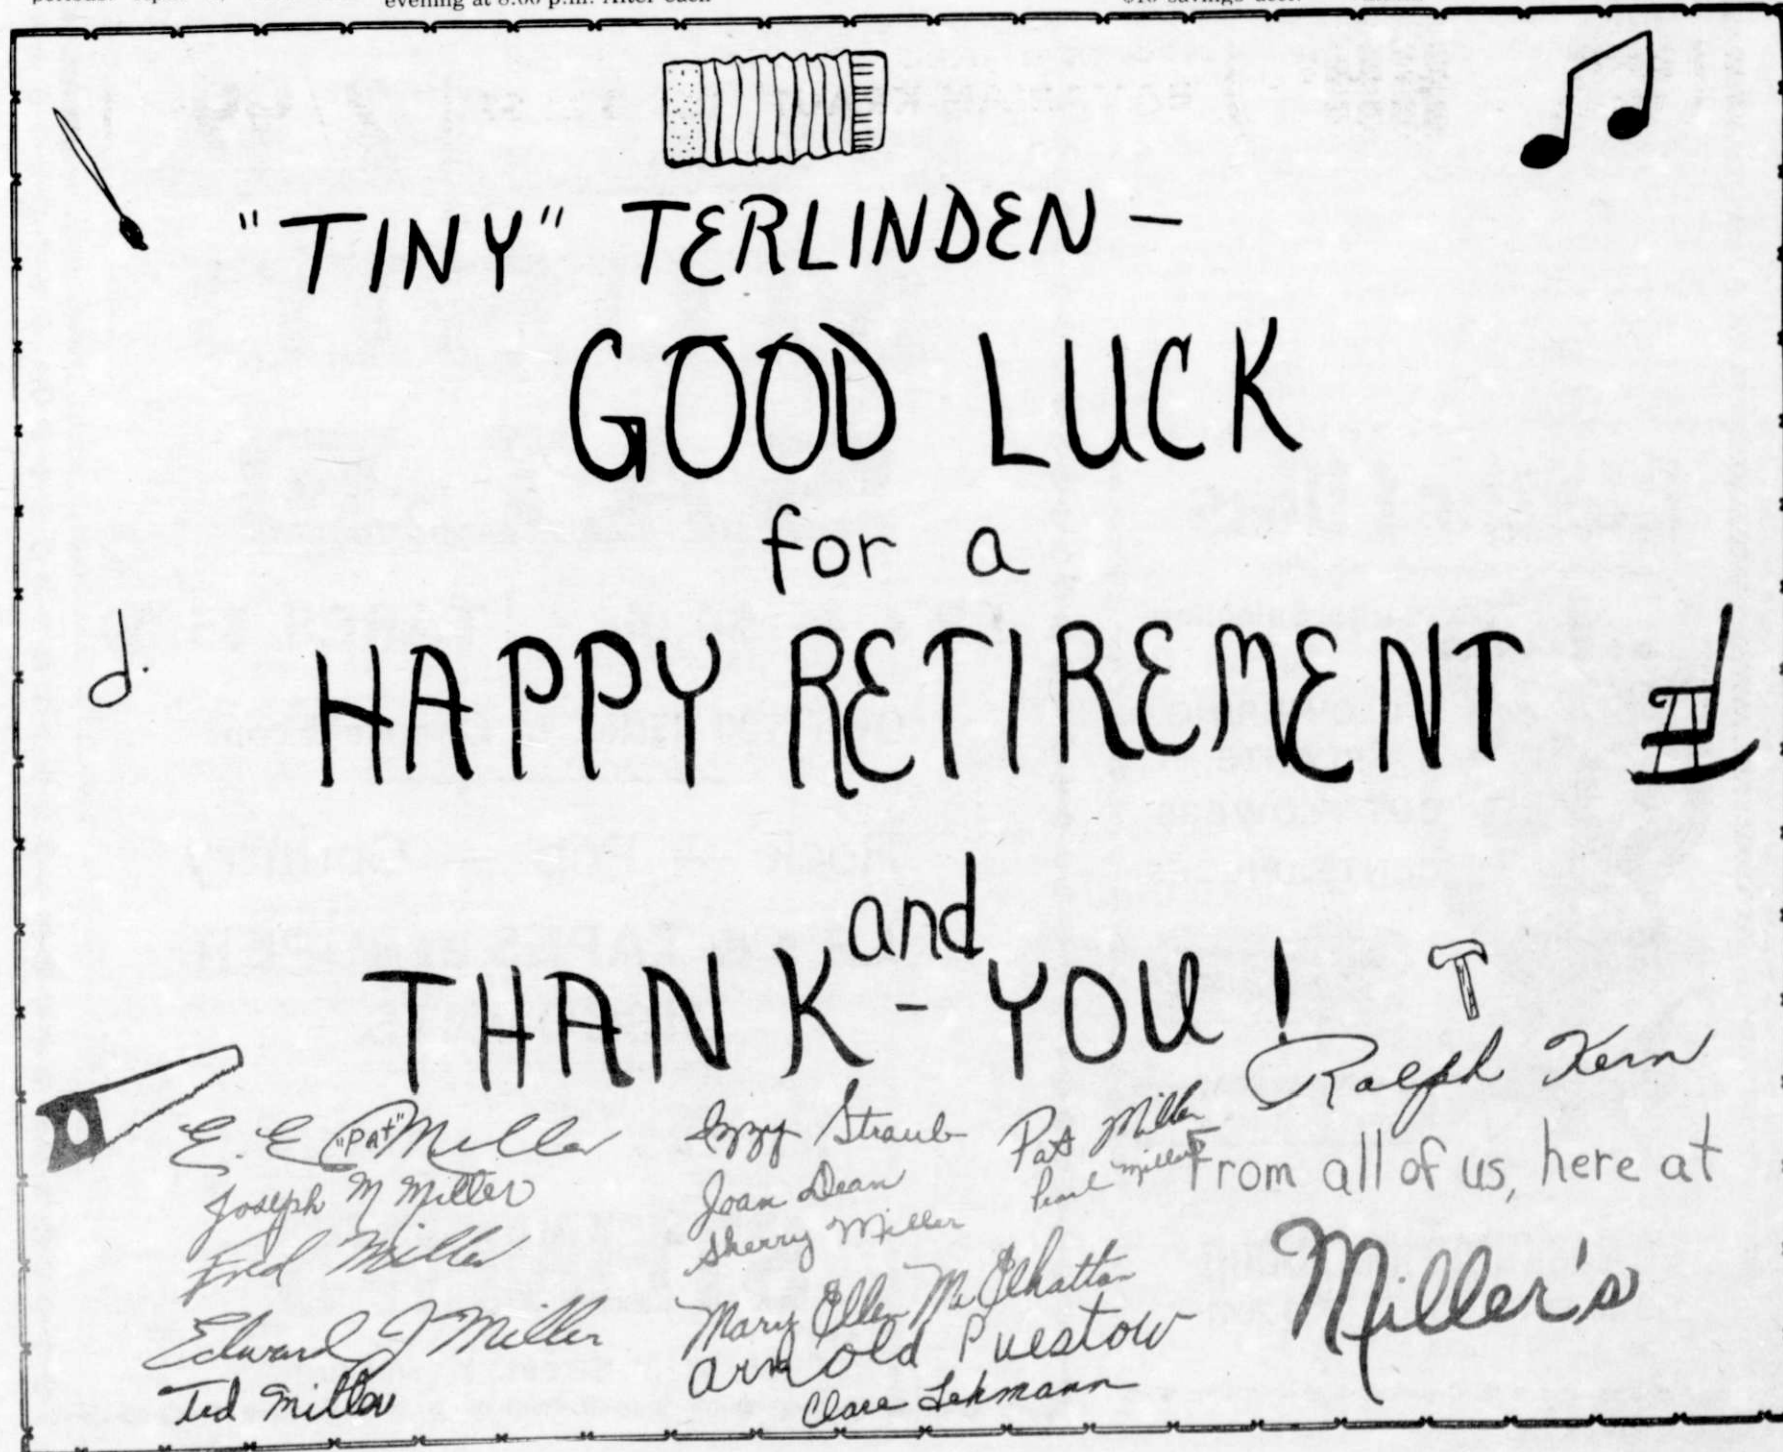 evening at 8:00 p.m. After each
"TINY" TERLINDEN –
GOOD LUCK
for a
HAPPY RETIREMENT
and
THANK-YOU!
Ralph Kern
E. E. "Pat" Miller
Joseph M Miller
Fred Miller
Edward J Miller
Ted Miller
Izzy Straub
Joan Dean
Sherry Miller
Mary Ellen McElhatton
Arnold Puestow
Clare Lehmann
Pat Miller
Pearl Miller
From all of us, here at
Miller's